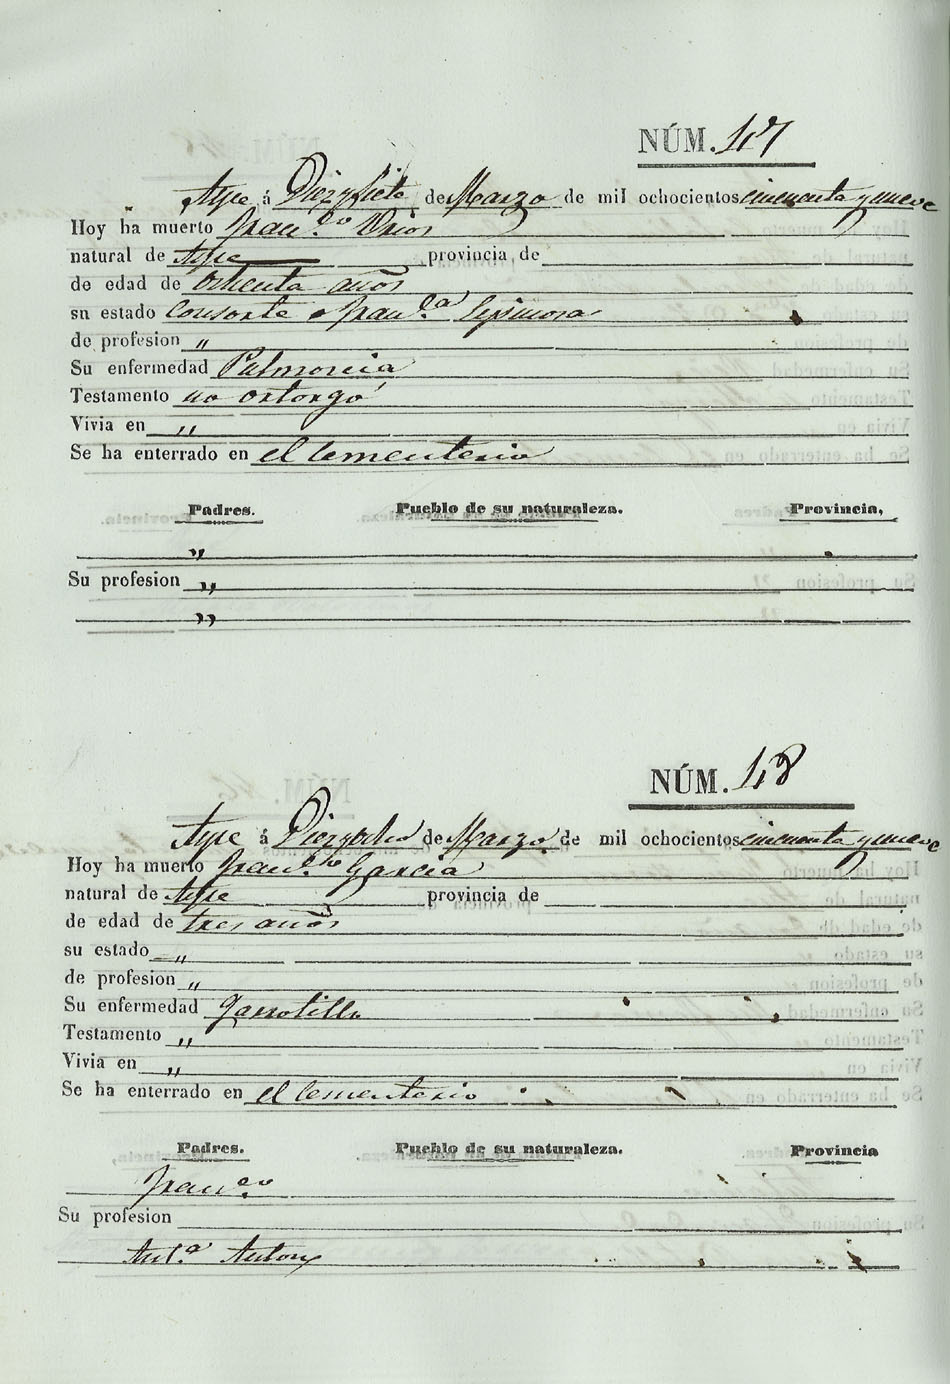 NÚM. 47
Aspe á Diez y siete de Marzo de mil ochocientos cincuenta y nueve
Hoy ha muerto Fran.co
natural de Aspe provincia de
de edad de ochenta años
su estado Consorte Fran.ca Espinosa
de profesion „
Su enfermedad Pulmonia
Testamento no ortorgó
Vivia en „
Se ha enterrado en el Cementerio
Padres. Pueblo de su naturaleza. Provincia,
„
Su profesion „
„
NÚM. 48
Aspe á Diez y ocho de Marzo de mil ochocientos cincuenta y nueve
Hoy ha muerto Fran.co Garcia
natural de Aspe provincia de
de edad de tres años
su estado „
de profesion „
Su enfermedad Garrotillo
Testamento „
Vivia en „
Se ha enterrado en el Cementerio
Padres. Pueblo de su naturaleza. Provincia
Fran.co
Su profesion
Ant.a Anton